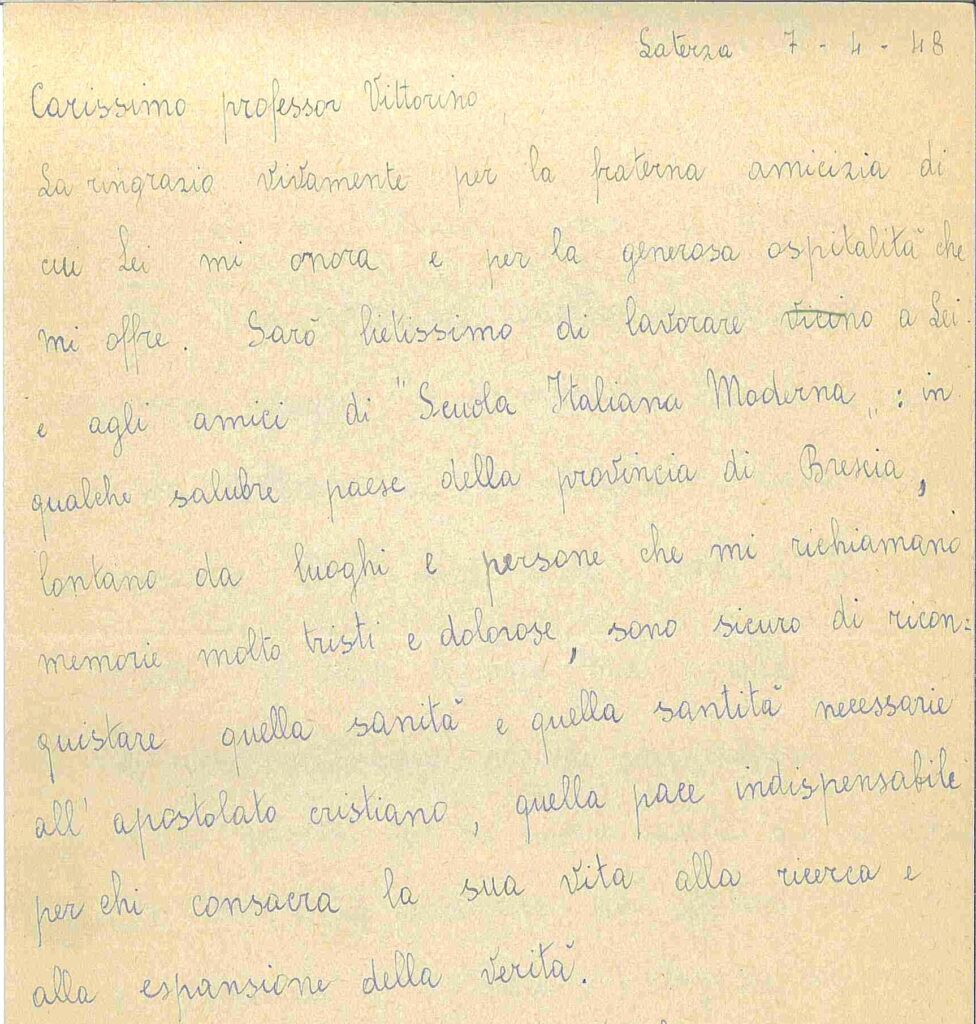 Laterza 7 - 4 - 48
Carissimo professor Vittorino,
La ringrazio vivamente per la fraterna amicizia di
cui Lei mi onora e per la generosa ospitalità che
mi offre. Sarò lietissimo di lavorare vicino a Lei
e agli amici di "Scuola Italiana Moderna„ : in
qualche salubre paese della provincia di Brescia,
lontano da luoghi e persone che mi richiamano
memorie molto tristi e dolorose, sono sicuro di ricon=
quistare quella sanità e quella santità necessarie
all' apostolato cristiano, quella pace indispensabile
per chi consacra la sua vita alla ricerca e
alla espansione della verità.